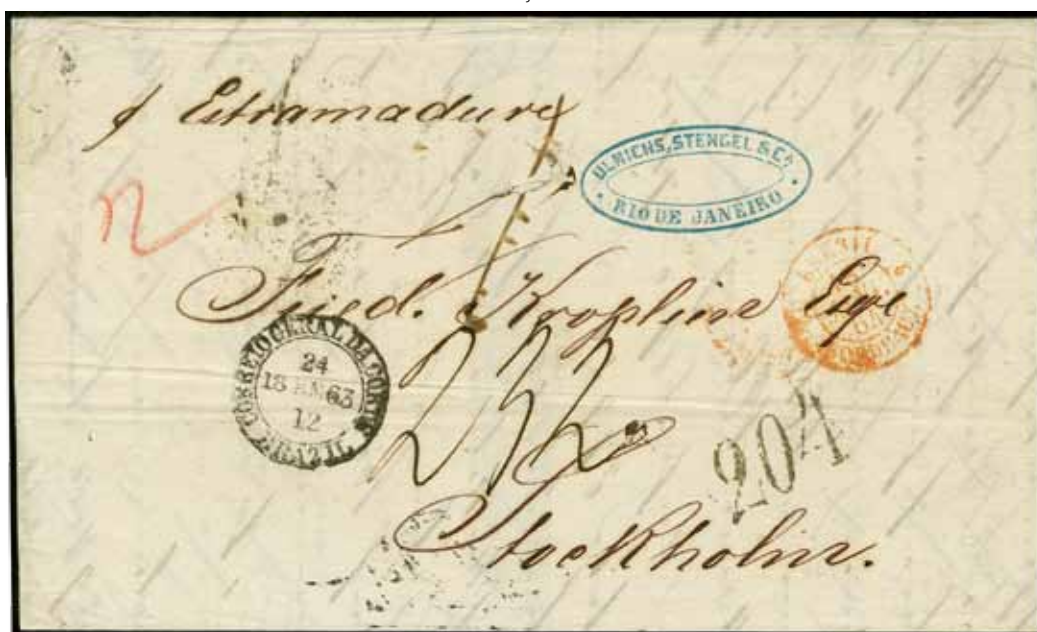 p Estramadure
ULRICHS, STENGEL & Cª
RIO DE JANEIRO
12
Fried. Kroplin Esqe
CORREIO GERAL DA CORTE
24
18 63
12
BRAZIL
232
204
Stockholm.